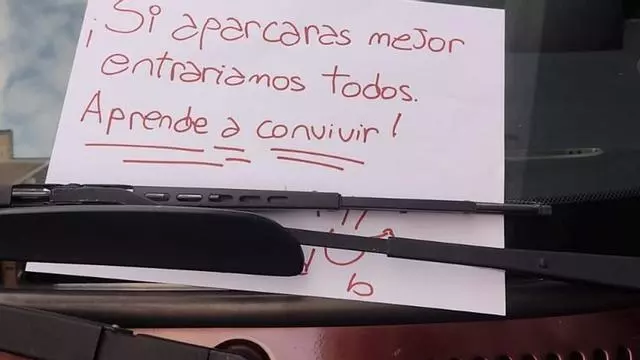 ¡Si aparcaras mejor
entrariamos todos.
Aprende a convivir!
b